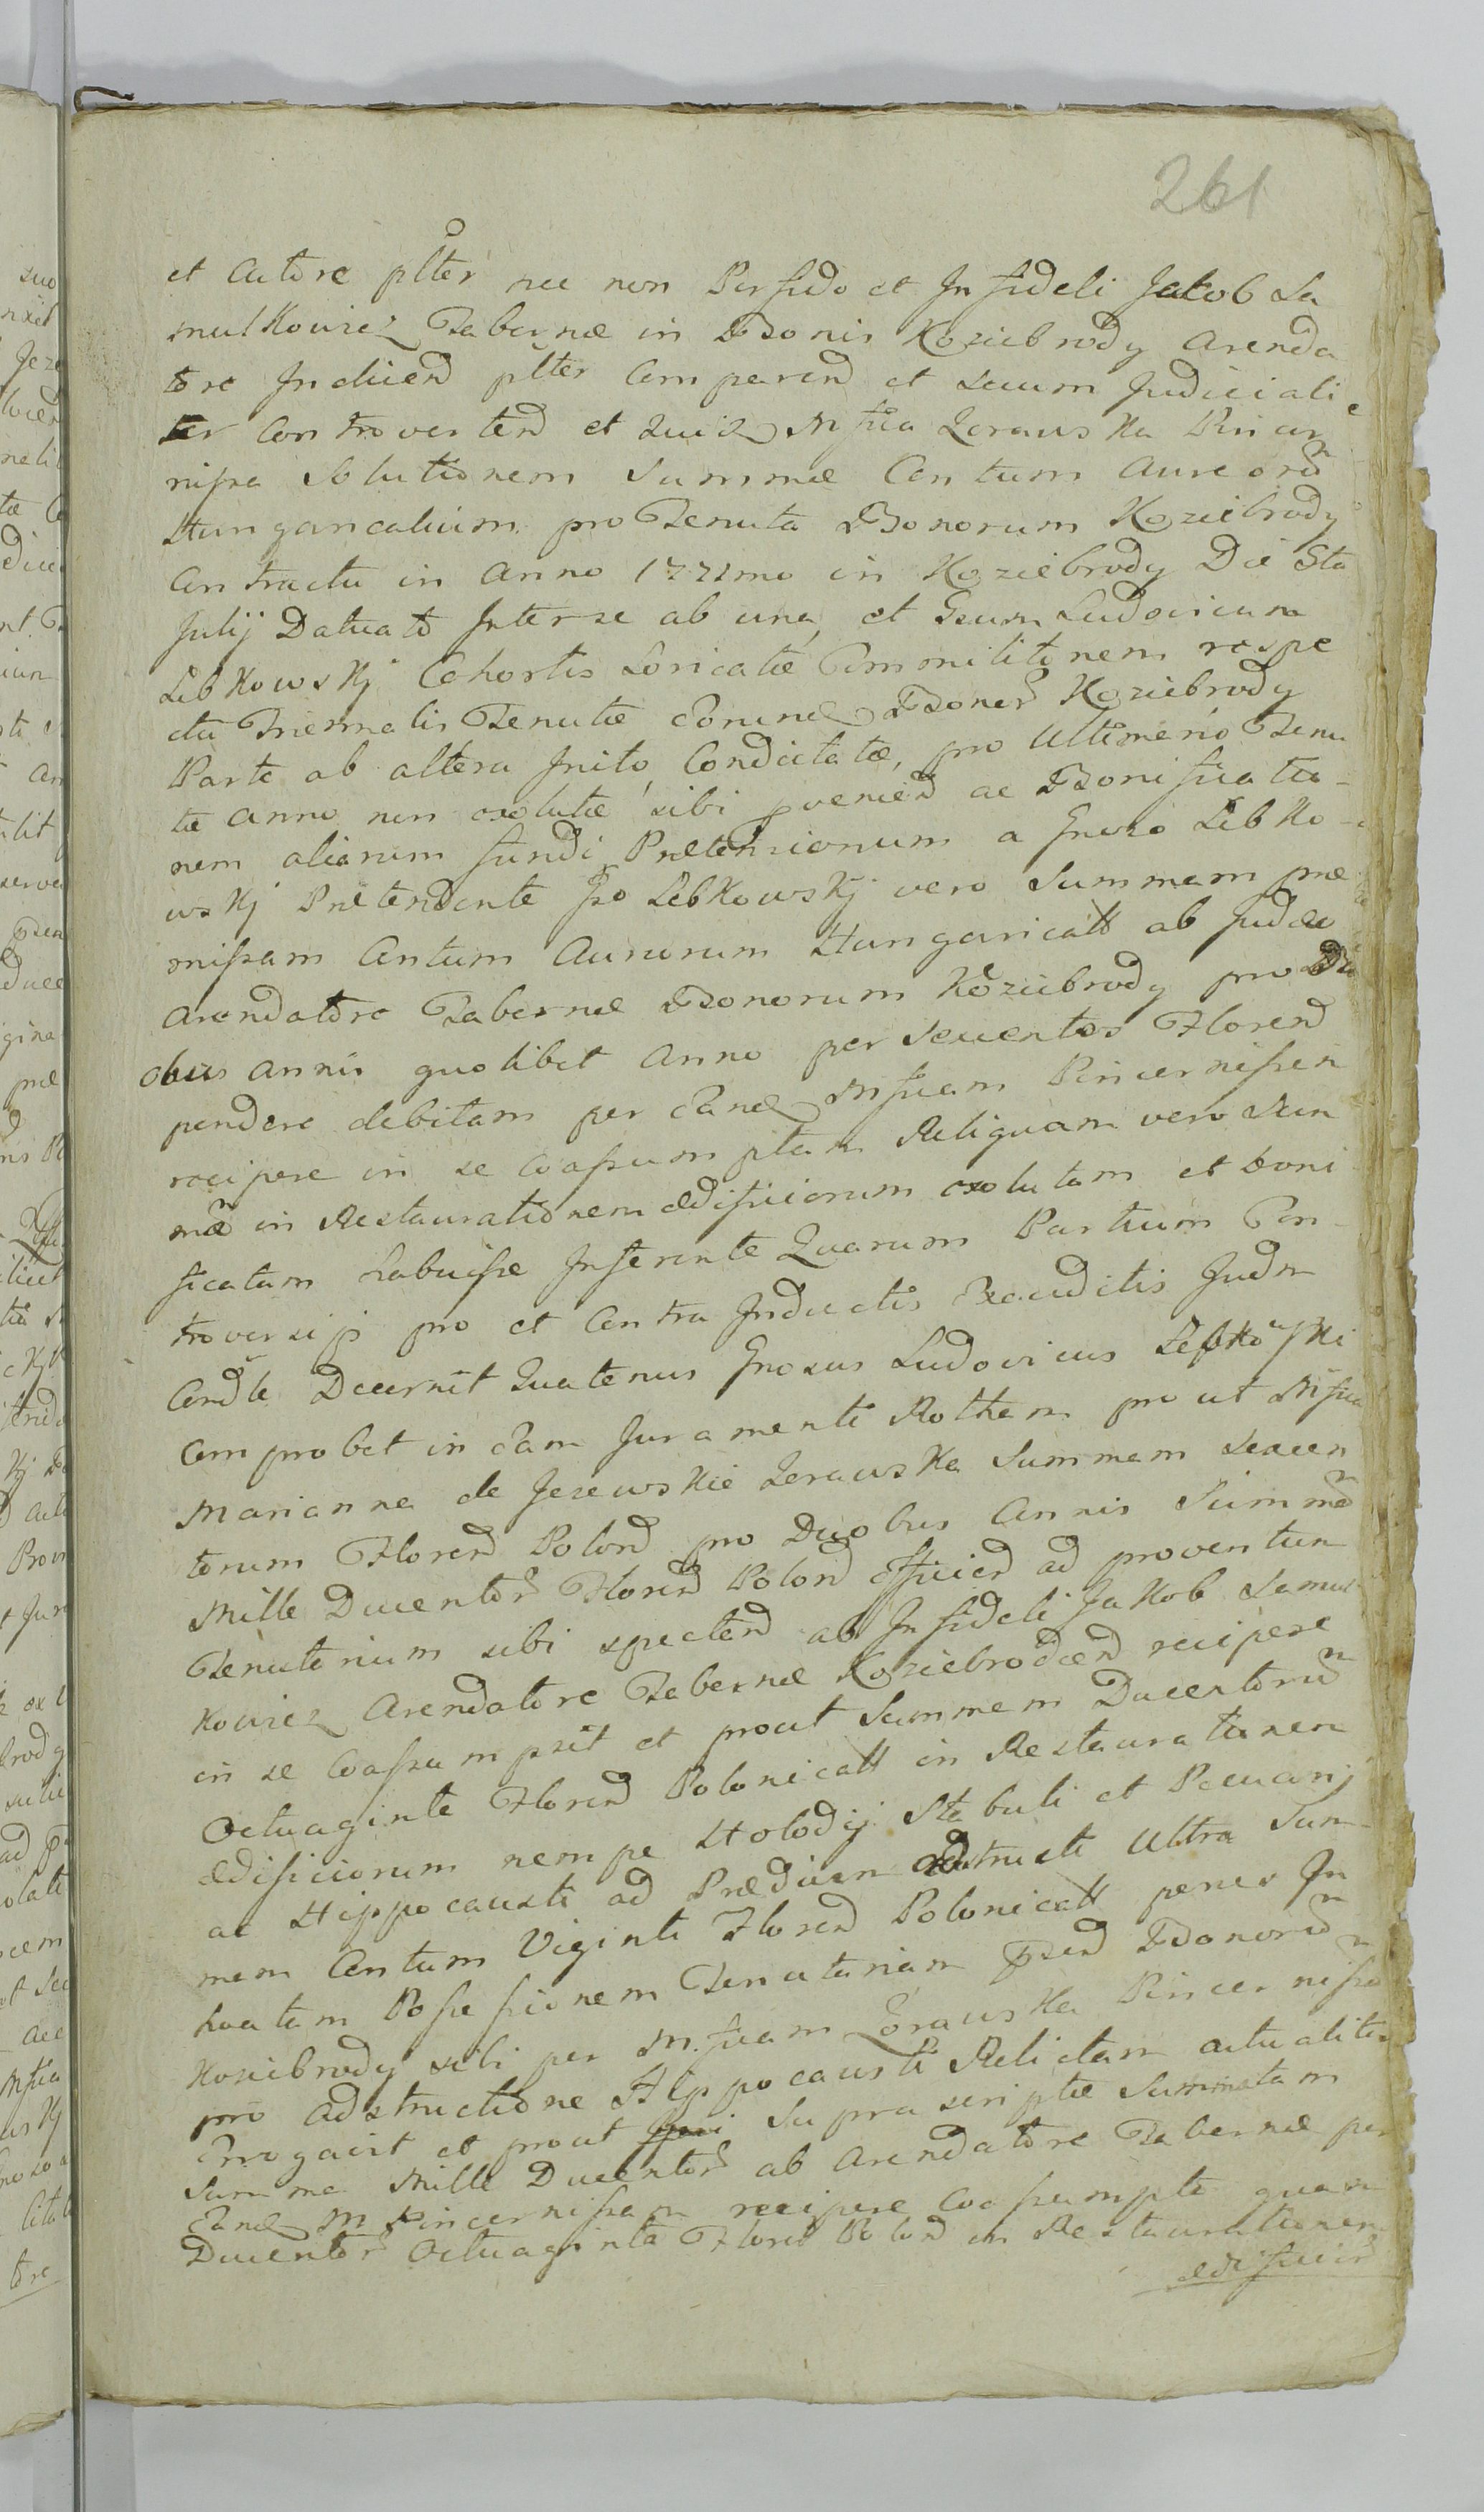 261
et Actore plter nec non Perfido et Infideli Jakob Sa
mulkowicz Tabernæ in Bonis Koziebrody Arenda
tore Inducend plter Comparend et Secum Judiciali
ter Controvertend et Quia Mfica Zerawska Pincer
nissa Solutionem Summæ Centum Aureorũ
Hungaricalium pro Tenuta Bonorum Koziebrody
Contractu in Anno 1771mo in Koziebrody Die 8ta
Julij Datuato Inter se ab una, et Gsum Ludovicum
Lebkowskj Cohortis Loricatæ Commilitonem respe
ctu Triennalis Tenutæ eorund Bonor Koziebrody
Parte ab altera Inito, Condictatæ, pro Ultimario Tenu
tæ Anno non exolutæ sibi pveniend ac Bonificatio-
nem aliarum fundi Prætensionum a Gnoso Lebko-
wskj Prætendente Gso Lebkowskj vero Summam præ
missam Centum Aureorum Hungaricall ab Judæo
Arendatore Tabernæ Bonorum Koziebrody pro Du
obus Annis quolibet Anno per Sexcentos Floren
pendere debitam per Eand Mficam Pincernissam
recipere in se Coassumptam Reliquam vero Sum
mæ in Restaurationem ædificiorum exolutam et boni
ficatam habuisse Inferente Quarum Partium Con-
troversijs pro et Contra Inductis Exauditis Judm
Condle Decernit Quatenus Gnosus Ludovicus Lebkowski
Comprobet in Eam Juramenti Rotham prout Mfica
Marianna de Jezewskie Zerawska Summam Sexcen
torum Floren Polon pro Duobus Annis Summã
Mille Ducentor Floren Polon efficien ad proventum
Tenutorium sibi spectend ab Infideli Jakob Samul
kowicz Arendatore Tabernæ Koziebrodcen recipere
in se Coassumpsit et prout Summam Ducentorũ
Octuaginta Floren Polonicall in Restaurationem
ædificiorum nempe Holodij Stabuli et Pecuarij
ac Hippocausti ad Prædium adstructi Ultra Sum-
mam Centum Viginti Floren Polonicall penes In
huatam Possessionem Tenutariam psend Bonorũ
Koziebrody sibi per Mficam Zerawska Pincernissa
pro adstructione Hyppocausti Relictam actualiter
Erogavit et prout Supra scriptæ Summatam
Summa Mille Ducentor ab Arendatore Tabernæ per
Eand M Pincernissam recipere Coassumpta quam
Ducentor Octuaginta Floren Polon in Restaurationem
ædificior